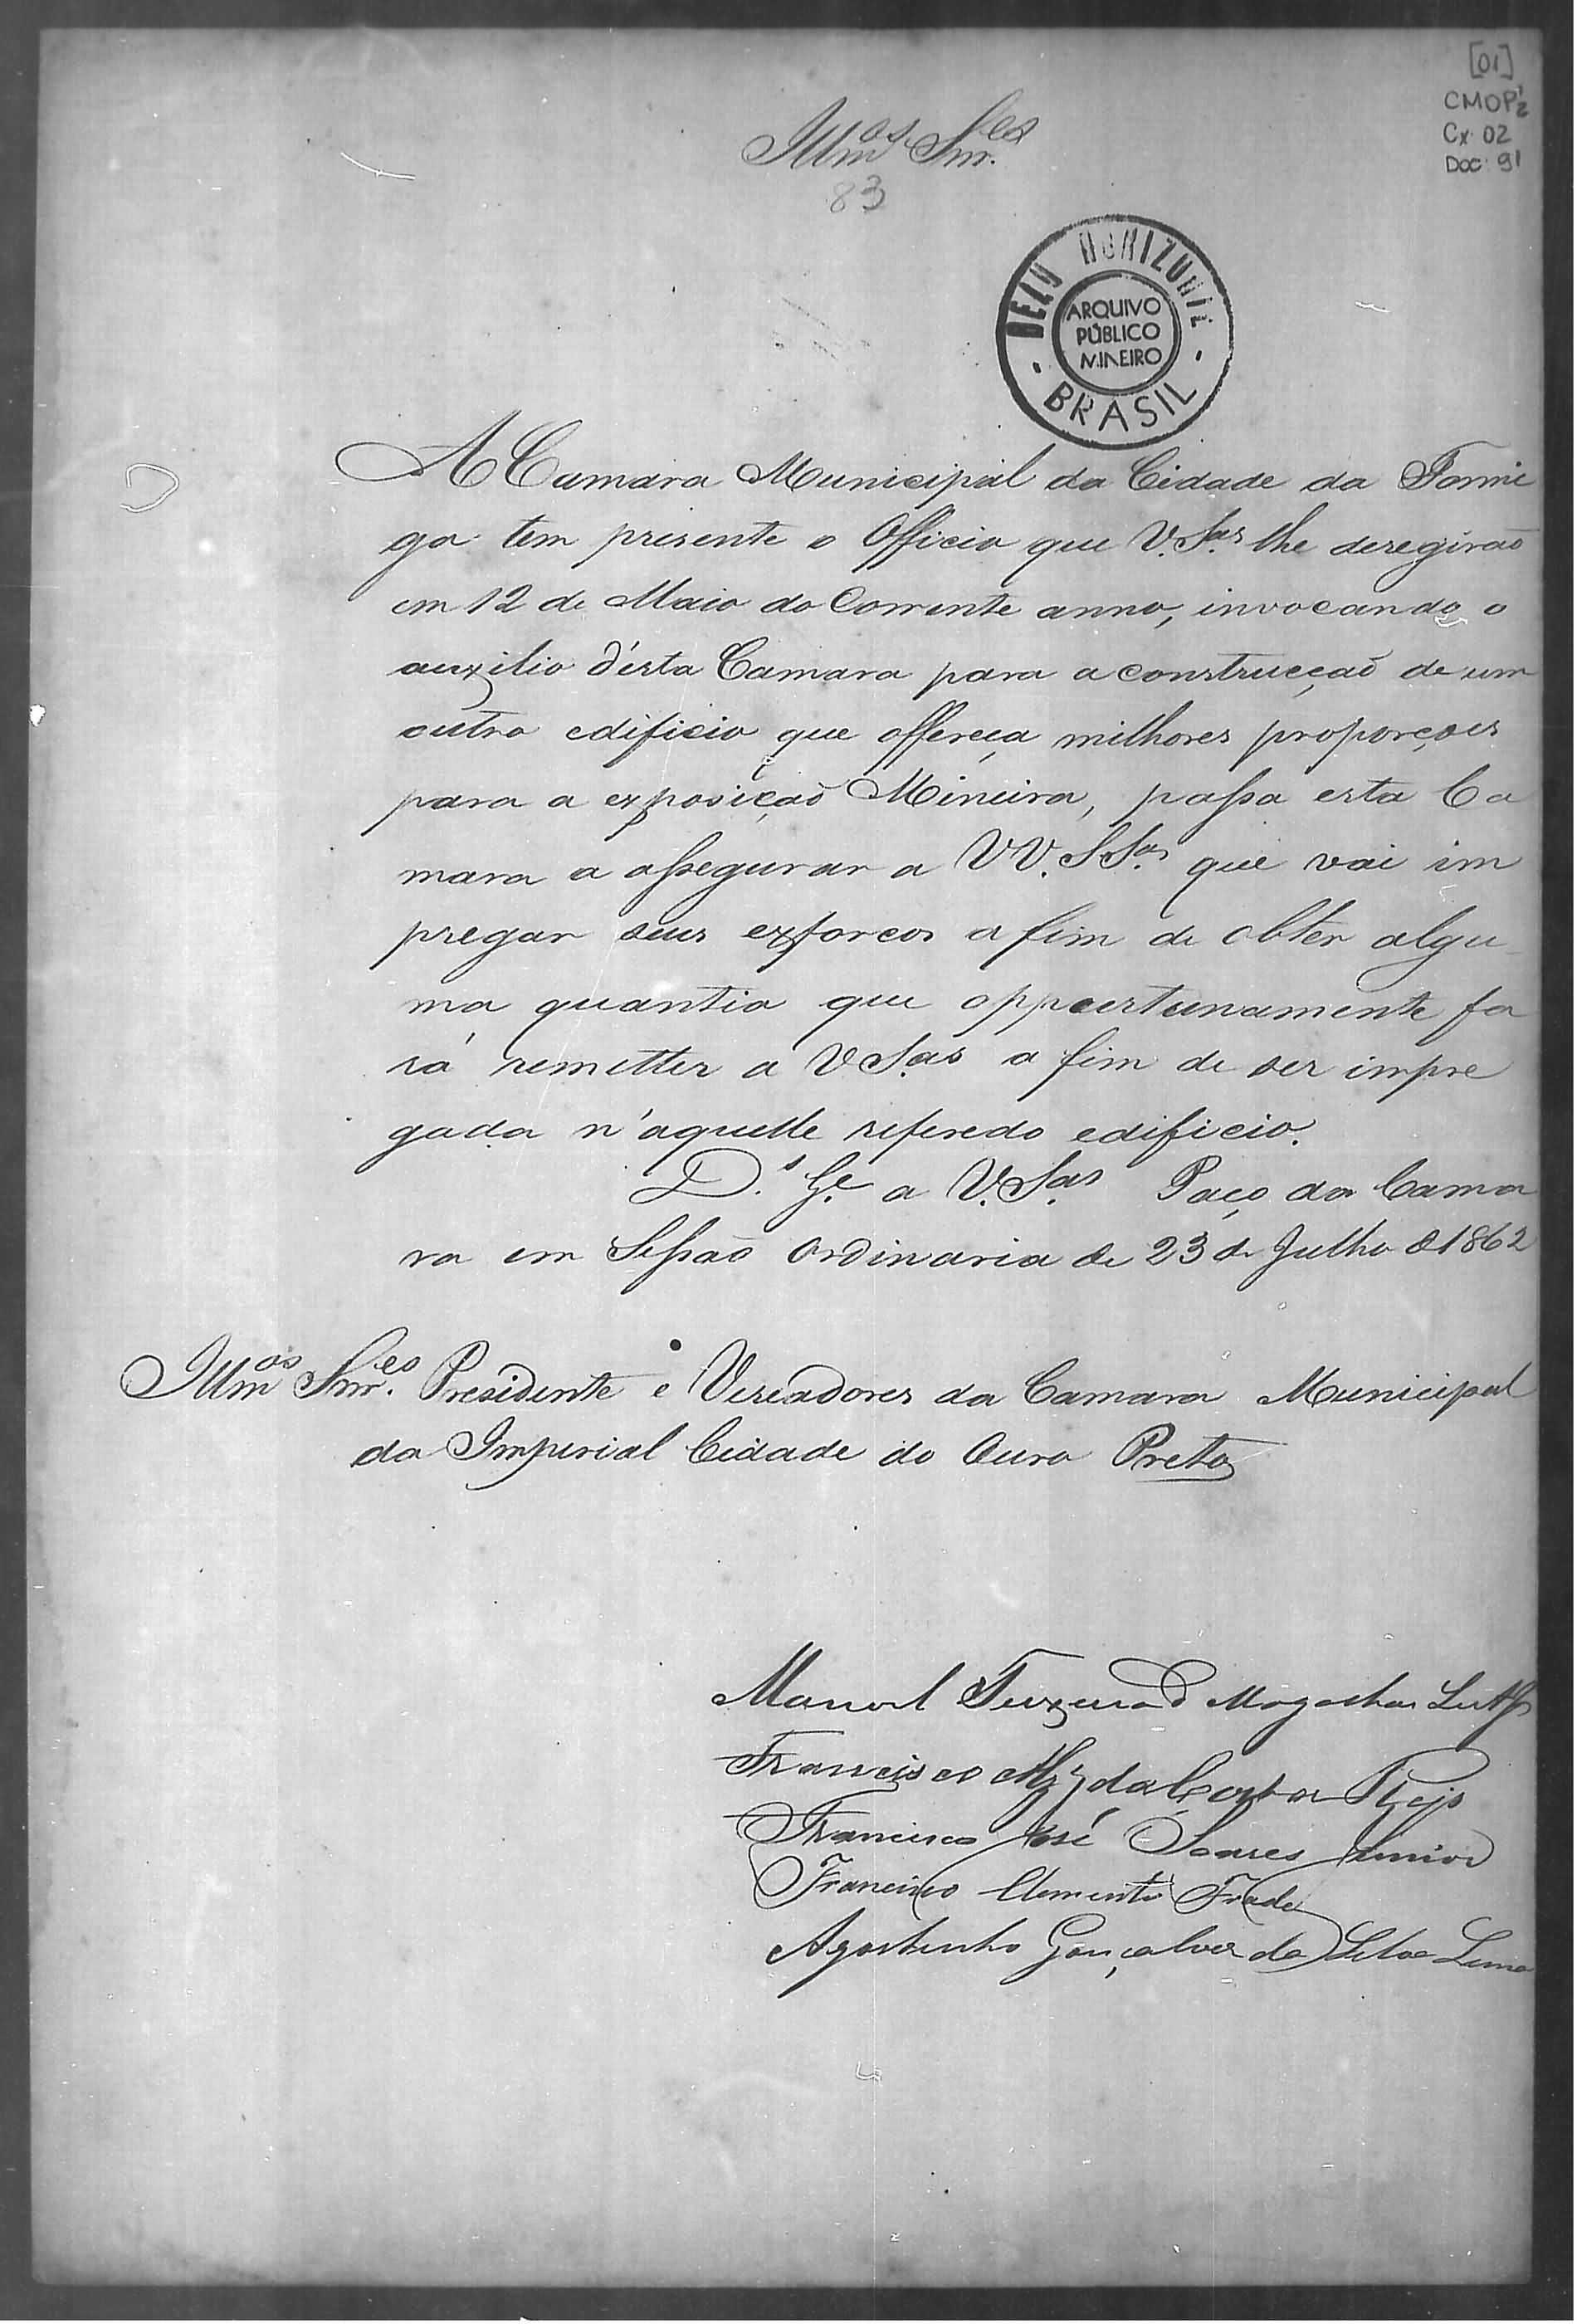 [01]
CMOP 1/2
Cx. 02
Doc: 91
Illmos Snr.es
83
BELO HORIZONTE
ARQUIVO
PÚBLICO
MINEIRO
BRASIL
A Camara Municipal da Cidade da Formi
ga tem presente o Officio que V. Sas lhe deregirão
em 12 de Maio do Corrente anno, invocando o
auxilio d'ésta Camara para a construcção de um
outro edificio que offereça milhores proporções
para a exposição Mineira, passa esta Ca
mara a assegurar a VV. SSas que vai im
pregar seus exforcos a fim de obter algu
ma quantia que oppourtunamente fa
rá remetter a V Sas a fim de ser impre
gada n'aquelle referedo edificio.
D.s G.e a V. Sas Paço da Cama
ra em Sessão Ordinaria de 23 de Julho de 1862
Illmos Snr.es Presidente e Vereadores da Camara Municipal
da Imperial Cidade do Ouro Preto
Manoel Teixeira
Francisco da Costa
Francisco José Soares Junior
Francisco Clemente Frade
Agostinho Gonçalves da Silva Lima